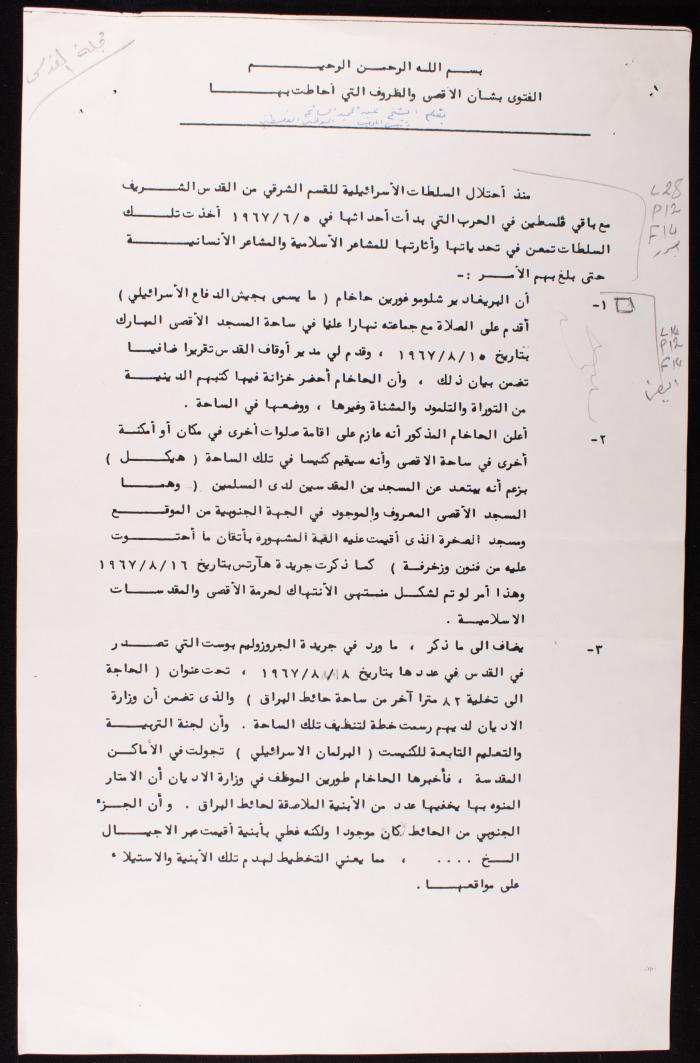 مجلة القدس
بسم الله الرحمن الرحيم
الفتوى بشأن الأقصى والظروف التي أحاطت بها
بقلم الشيخ عبد الحميد السائح
منذ أحتلال السلطات الأسرائيلية للقسم الشرقي من القدس الشريف
مع باقي فلسطين في الحرب التي بدأت أحداثها في ١٩٦٧/٦/٥ أخذت تلك
السلطات تمعن في تحدياتها وأثارتها للمشاعر الأسلامية والمشاعر الأنسانية
حتى بلغ بهم الأمر :-
L28
P12
F14
١- أن البريغادير شلوموغورين حاخام ( ما يسمى بجيش الدفاع الأسرائيلي )
أقدم على الصلاة مع جماعته نهارا علنا في ساحة المسجد الأقصى المبارك
بتاريخ ١٩٦٧/٨/١٥ ، وقدم لي مدير أوقاف القدس تقريرا ضافيا
تضمن بيان ذلك ، وأن الحاخام أحضر خزانة فيها كتبهم الدينية
من التوراة والتلمود والمشناة وغيرها ، ووضعها في الساحة .
L14
P12
F14
٢- أعلن الحاخام المذكور أنه عازم على اقامة صلوات أخرى في مكان أو أمكنة
أخرى في ساحة الاقصى وأنه سيقيم كنيسا في تلك الساحة ( هيكل )
بزعم أنه يبتعد عن المسجدين المقدسين لدى المسلمين ( وهما
المسجد الأقصى المعروف والموجود في الجهة الجنوبية من الموقع
ومسجد الصخرة الذى أقيمت عليه القبة المشهورة بأتقان ما أحتوت
عليه من فنون وزخرفة ) كما ذكرت جريدة هآرتس بتاريخ ١٩٦٧/٨/١٦
وهذا أمر لو تم لشكل منتهى الأنتهاك لحرمة الأقصى والمقدسات
الاسلامية .
٣- يضاف الى ما ذكر ، ما ورد في جريدة الجروزوليم بوست التي تصدر
في القدس في عددها بتاريخ ١٩٦٧/٨/٨ ، تحت عنوان ( الحاجة
الى تخلية ٨٢ مترا آخر من ساحة حائط البراق ) والذى تضمن أن وزارة
الاديان لديهم رسمت خطة لتنظيف تلك الساحة . وأن لجنة التربية
والتعليم التابعة للكنيست ( البرلمان الاسرائيلي ) تجولت في الأماكن
المقدسة ، فأخبرها الحاخام طورين الموظف في وزارة الاديان أن الامتار
المنوه بها يخفيها عدد من الأبنية الملاصقة لحائط البراق . وأن الجزء
الجنوبي من الحائط كان موجودا ولكنه غطي بأبنية أقيمت عبر الاجيال
الخ .... ، مما يعني التخطيط لهدم تلك الأبنية والاستيلاء
على مواقعها .